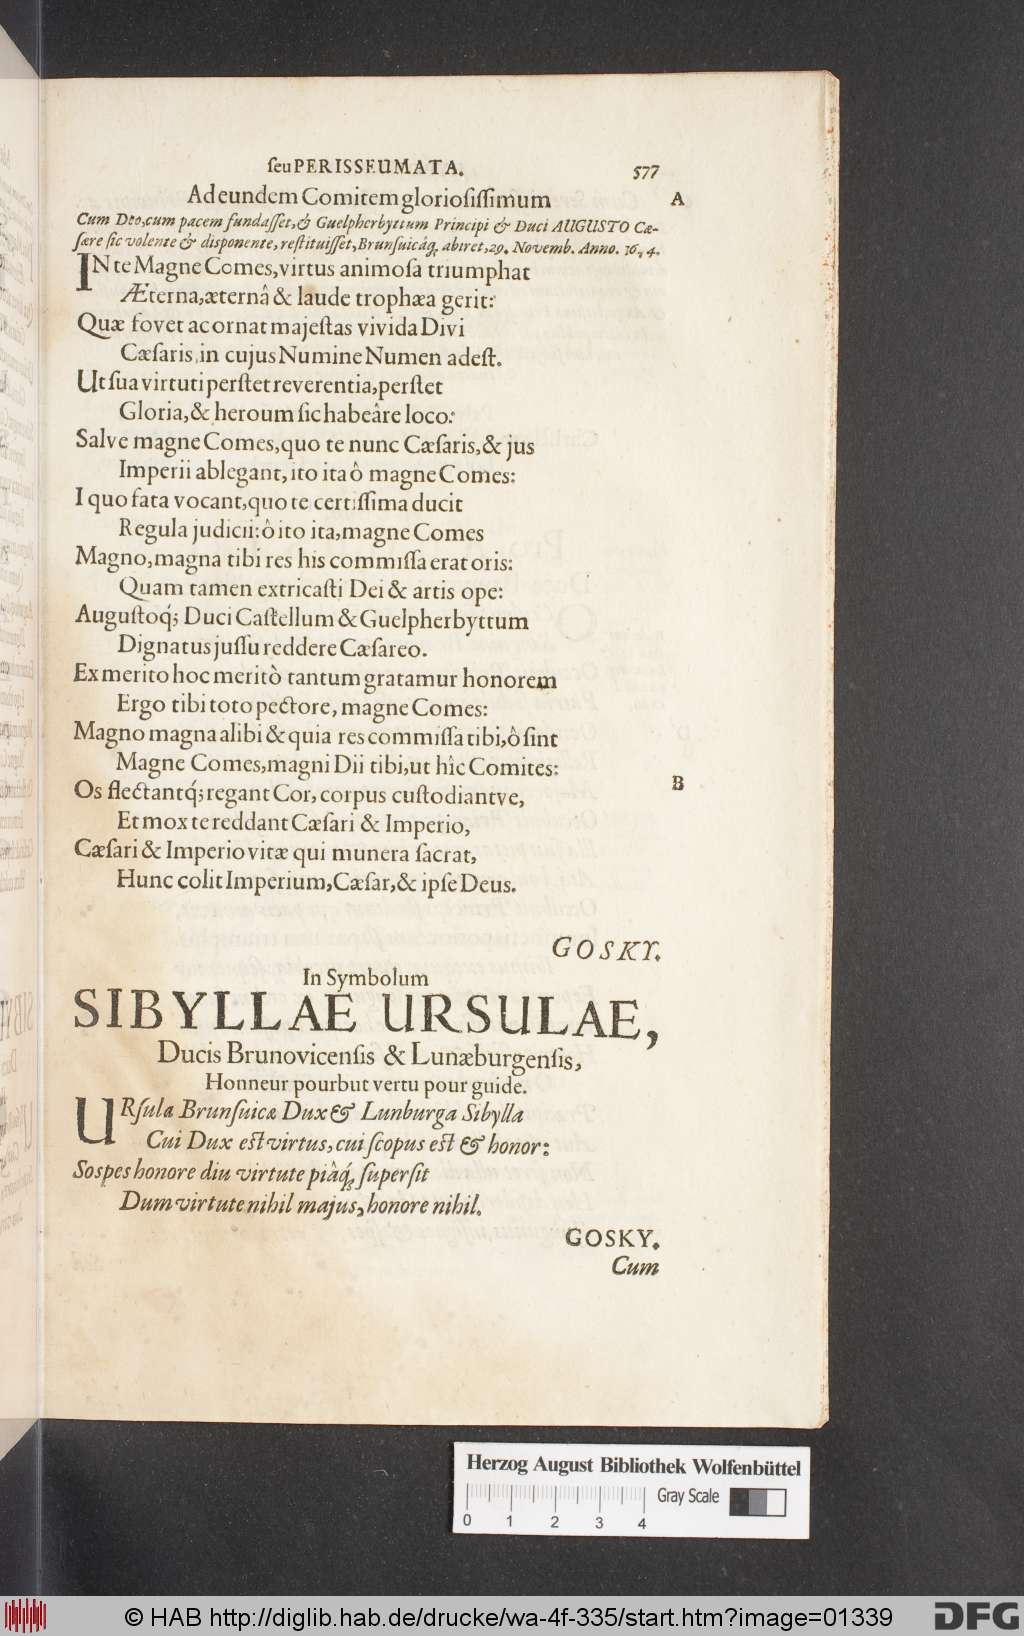 ſeu PERISSEUMATA. 577
Ad eundem Comitem glorioſiſſimum A
Cum Deo, cum pacem fundaſſet, & Guelpherbyttum Principi & Duci AUGUSTO Cæ-
ſare ſic volente & disponente, reſtituiſſet, Brunſuicáq́; abiret, 29. Novemb. Anno.
IN te Magne Comes, virtus animoſa triumphat
Æterna, æternâ & laude trophæa gerit:
Quæ fovet ac ornat majeſtas vivida Divi
Cæſaris, in cujus Numine Numen adeſt.
Ut ſua virtuti perſtet reverentia, perſtet
Gloria, & heroum ſic habeâre loco:
Salve magne Comes, quo te nunc Cæſaris, & jus
Imperii ablegant, ito ita ô magne Comes:
I quo fata vocant, quo te certiſſima ducit
Regula judicii: ô ito ita, magne Comes
Magno, magna tibi res his commiſſa erat oris:
Quam tamen extricaſti Dei & artis ope:
Auguſtoq́; Duci Caſtellum & Guelpherbyttum
Dignatus juſſu reddere Cæſareo.
Ex merito hoc meritò tantum gratamur honorem
Ergo tibi toto pectore, magne Comes:
Magno magna alibi & quia res commiſſa tibi, ô ſint
Magne Comes, magni Dii tibi, ut hîc Comites:
Os flectantq́; regant Cor, corpus cuſtodiantve, B
Et mox te reddant Cæſari & Imperio,
Cæſari & Imperio vitæ qui munera ſacrat,
Hunc colit Imperium, Cæſar, & ipſe Deus.
GOSKY.
In Symbolum
SIBYLLAE URSULAE,
Ducis Brunovicenſis & Lunæburgenſis,
Honneur pourbut vertu pour guide.
URſula Brunſuicæ Dux & Lunburga Sibylla
Cui Dux eſt virtus, cui ſcopus eſt & honor:
Sospes honore diu virtute piâq́; ſuperſit
Dum virtute nihil majus, honore nihil.
GOSKY.
Cum
Herzog August Bibliothek Wolfenbüttel
Gray Scale
0 1 2 3 4
© HAB http://diglib.hab.de/drucke/wa-4f-335/start.htm?image=01339
DFG